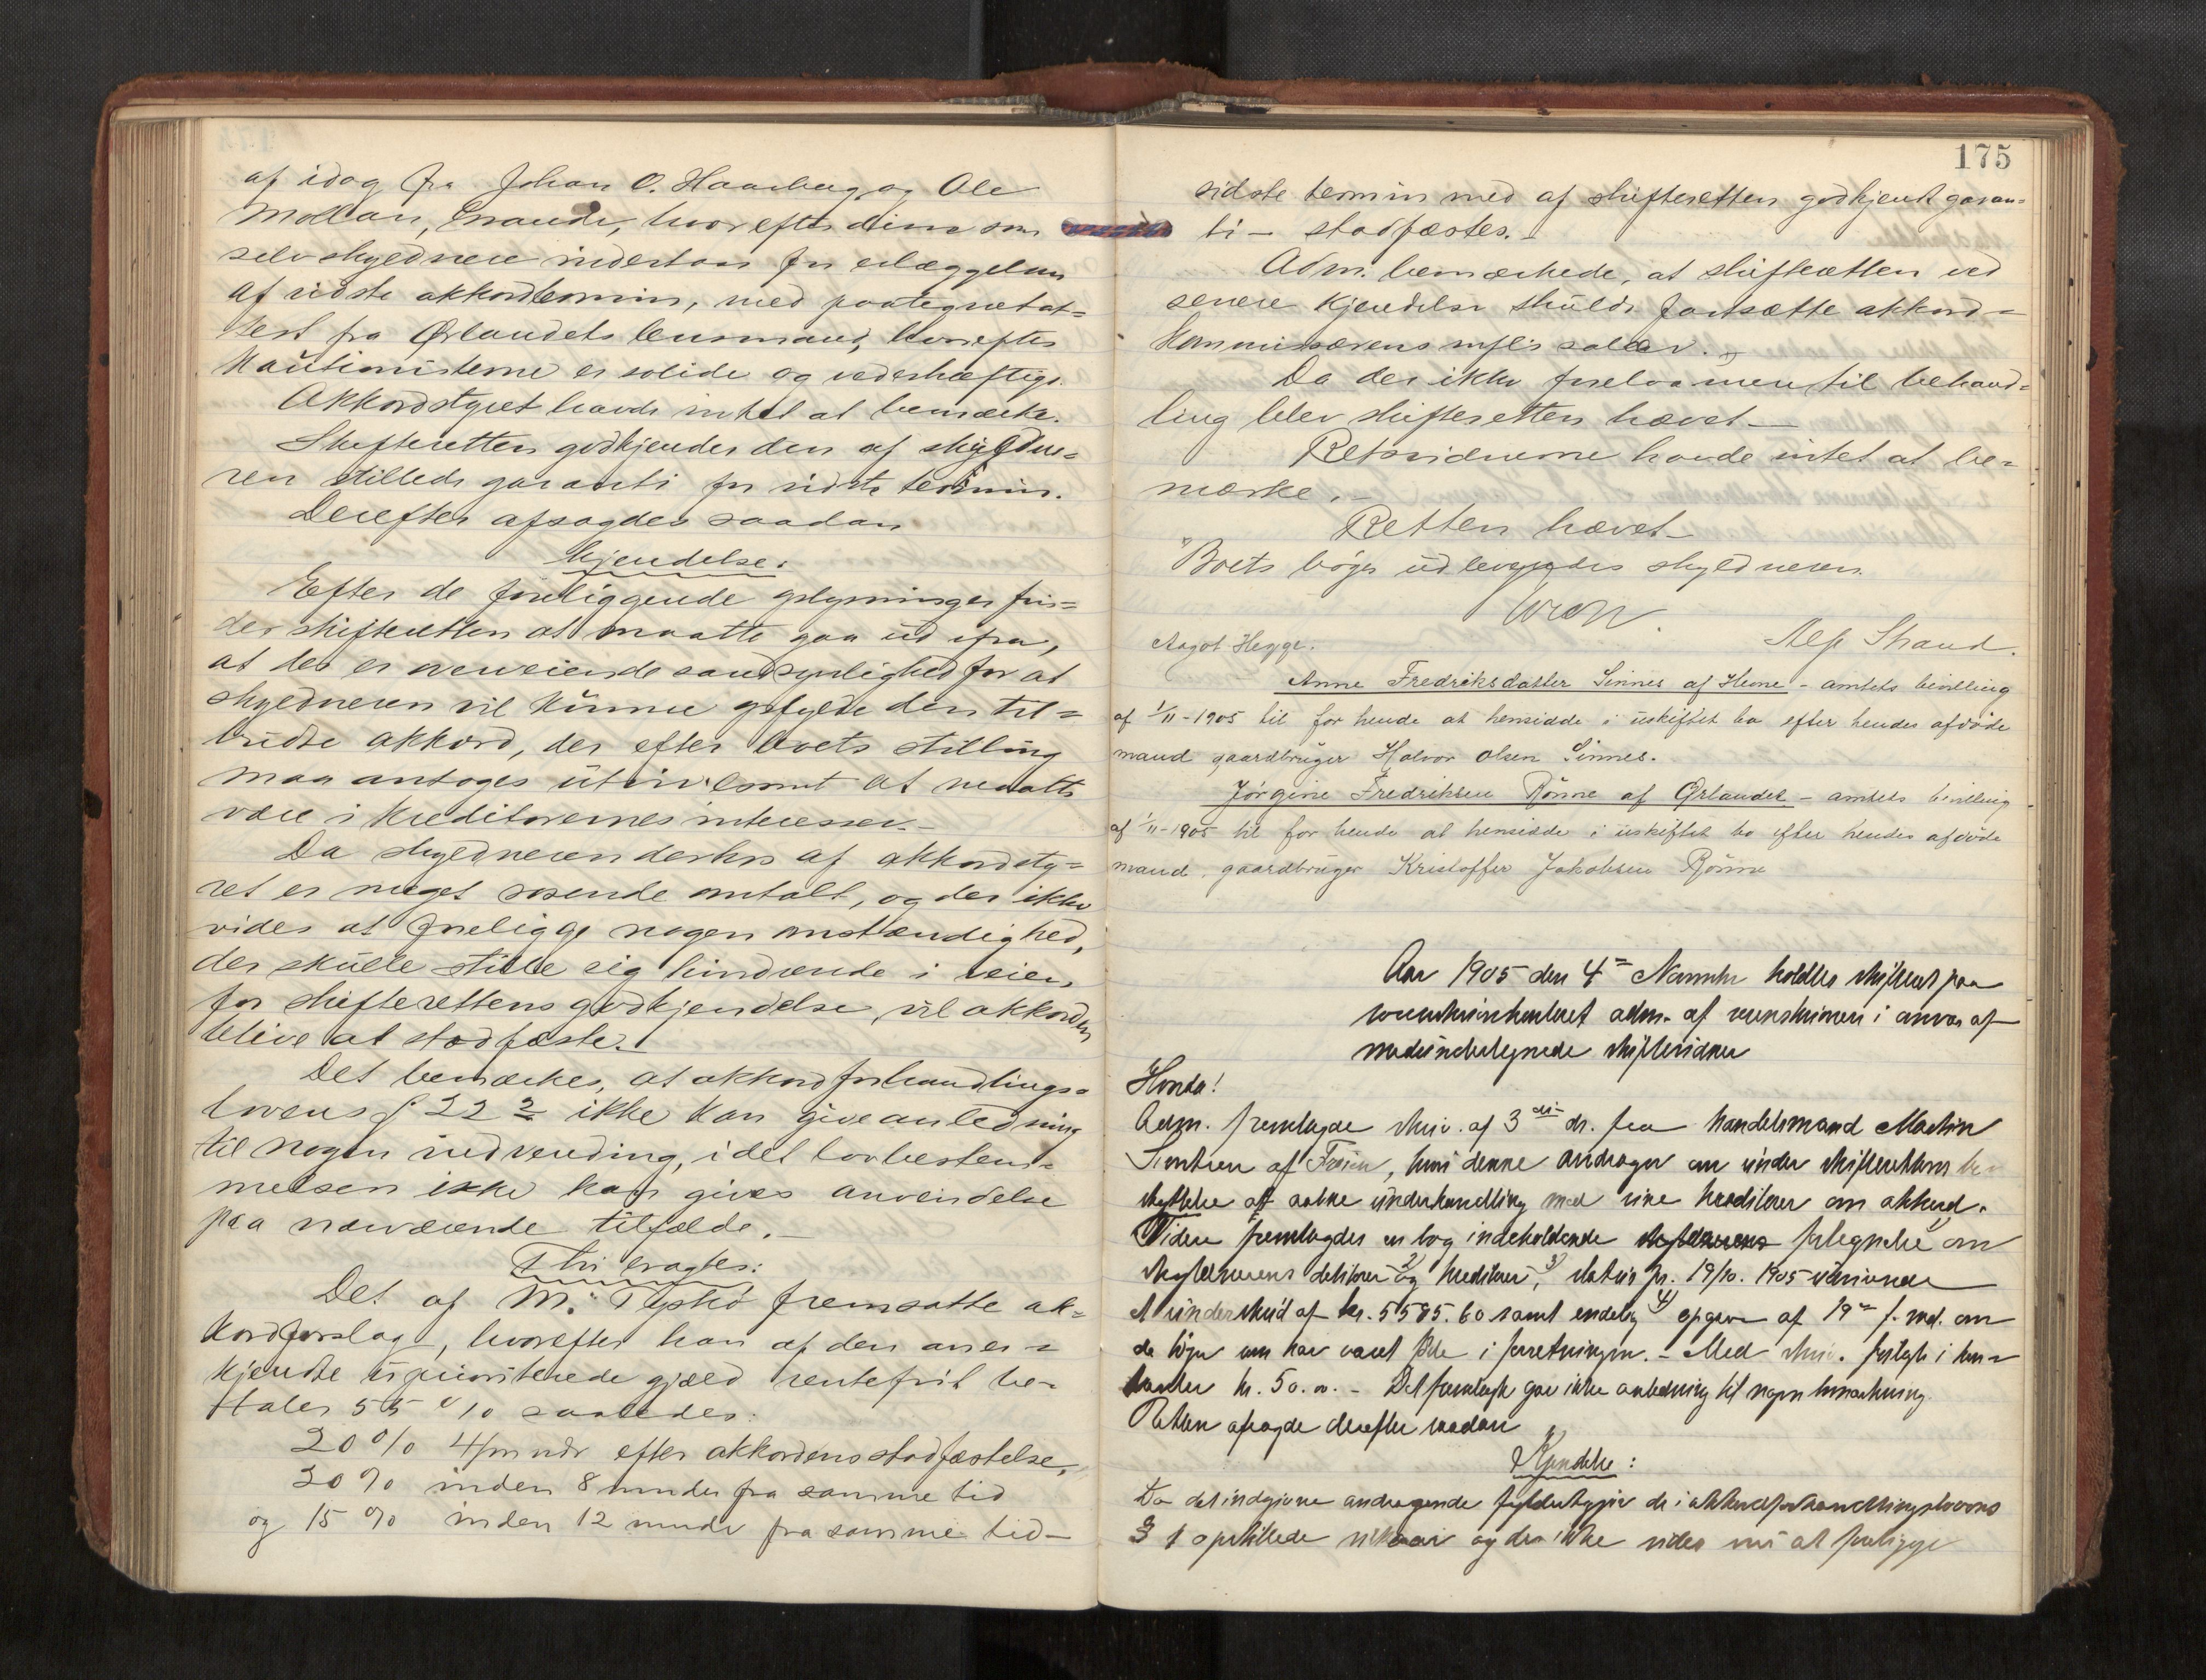 af idag fra Johan O. Haarberg og Ole
Mollan, Grande, hvorefter disse som
selvskyldnere indestaar for erlæggelsen
af sidste akkordtermin, med paategnet at=
test fra Ørlandets lensmand, hvorefter
kautionisterne er solide og vederhæftige.
Akkordstyret havde intet at bemærke.
Skifteretten godkjender den af skyldne=
ren stillede garanti for sidste termin.
Derefter afsagdes saadan
kjendelse:
Efter de foreliggende oplysninger fin=
der skifteretten at maatte gaa ud ifra,
at der er overveiende sandsynlighed for at
skyldneren vil kunne opfylde den til=
budte akkord, der efter boets stilling
maa antages utvivlsomt at
være i kreditorernes interesser.-
Da skyldneren derhos af akkordsty=
ret er meget rosende omtalt, og der ikke
vides at foreligge nogen omstændighed,
der skulle stille sig hindrende i veien
for skifterettens godkjendelse, vil akkorden
blive at stadfæste.-
Det bemærkes, at akkordforhandlings=
lovens § 22 2 ikke kan give anledning
til nogen indvending, idet lovbestem=
melsen ikke kan gives anvendelse
paa nærværende tilfælde.-
Thi eragtes:
Det af M. fremsatte ak=
kordforslag, hvorefter han af den aner=
kjendte uprioriterede gjæld rentefrit be=
taler 55 % saaledes:
20 % 4 mndr efter akkordens stadfæstelse,
20 % inden 8 mnder fra samme tid
og 15 % inden 12 mnder fra samme tid-
175
sidste termin med af skifteretten godkjendt garan=
ti - stadfæstes.-
Adm. bemærkede, at skifteretten ved
senere kjendelse skulde fastsætte akkord=
kommissærens salær.
Da der ikke forelaa mere til behand=
ling blev skifteretten hævet-
Retsvidnerne havde intet at be=
mærke.-
Retten hævet-
Boets bøger udleveredes skyldneren.
Aagot Hegge. Alf Strand.
Anne Fredriksdatter Sinnes af Hevne - amtets bevilling
af 1/11-1905 til for hende at hensidde i uskiftet bo efter hendes afdøde
mand gaardbruger Halvor Olsen Sinnes.
Jørgine Fredriksen Rønne af Ørlandet - amtets bevilling
af 1/11-1905 til for hende at hensidde i uskiftet bo efter hendes afdøde
mand, gaardbruger Kristoffer Jakobsen Rønne
Aar 1905 den 4de Novembr holdtes skifteret paa
sorenskriverkontoret adm. af sorenskriveren i overvær af
medundertegnede skiftevidner
Hvorda!
Adm. fremlagde skriv. af 3die ds. fra handelsmand Martin
af , hvori denne andrager om under skifterettens be
skyttelse at aabne underhandling med sine kreditorer om akkord.
Videre fremlagdes en bog indeholdende fortegnelse 1) om
skyldnerens debitorer 2) og kreditorer 3), status pr. 19/10. 1905 visende
et underskud af kr. 5585.60 samt endelig 4) opgave af 19de f. md. om
de bøger som har været ført i forretningen. - Med skriv. fulgte i kon=
tanter kr. 50.00. - Det fremlagte gav ikke anledning til nogen bemærkning
Retten afsagde derefter saadan
Kjendelse:
Da det indgivne andragende fyldestgjør de i akkordforhandlingslovens
§ 1 opstillede vilkaar og der ikke vides nu at foreligge